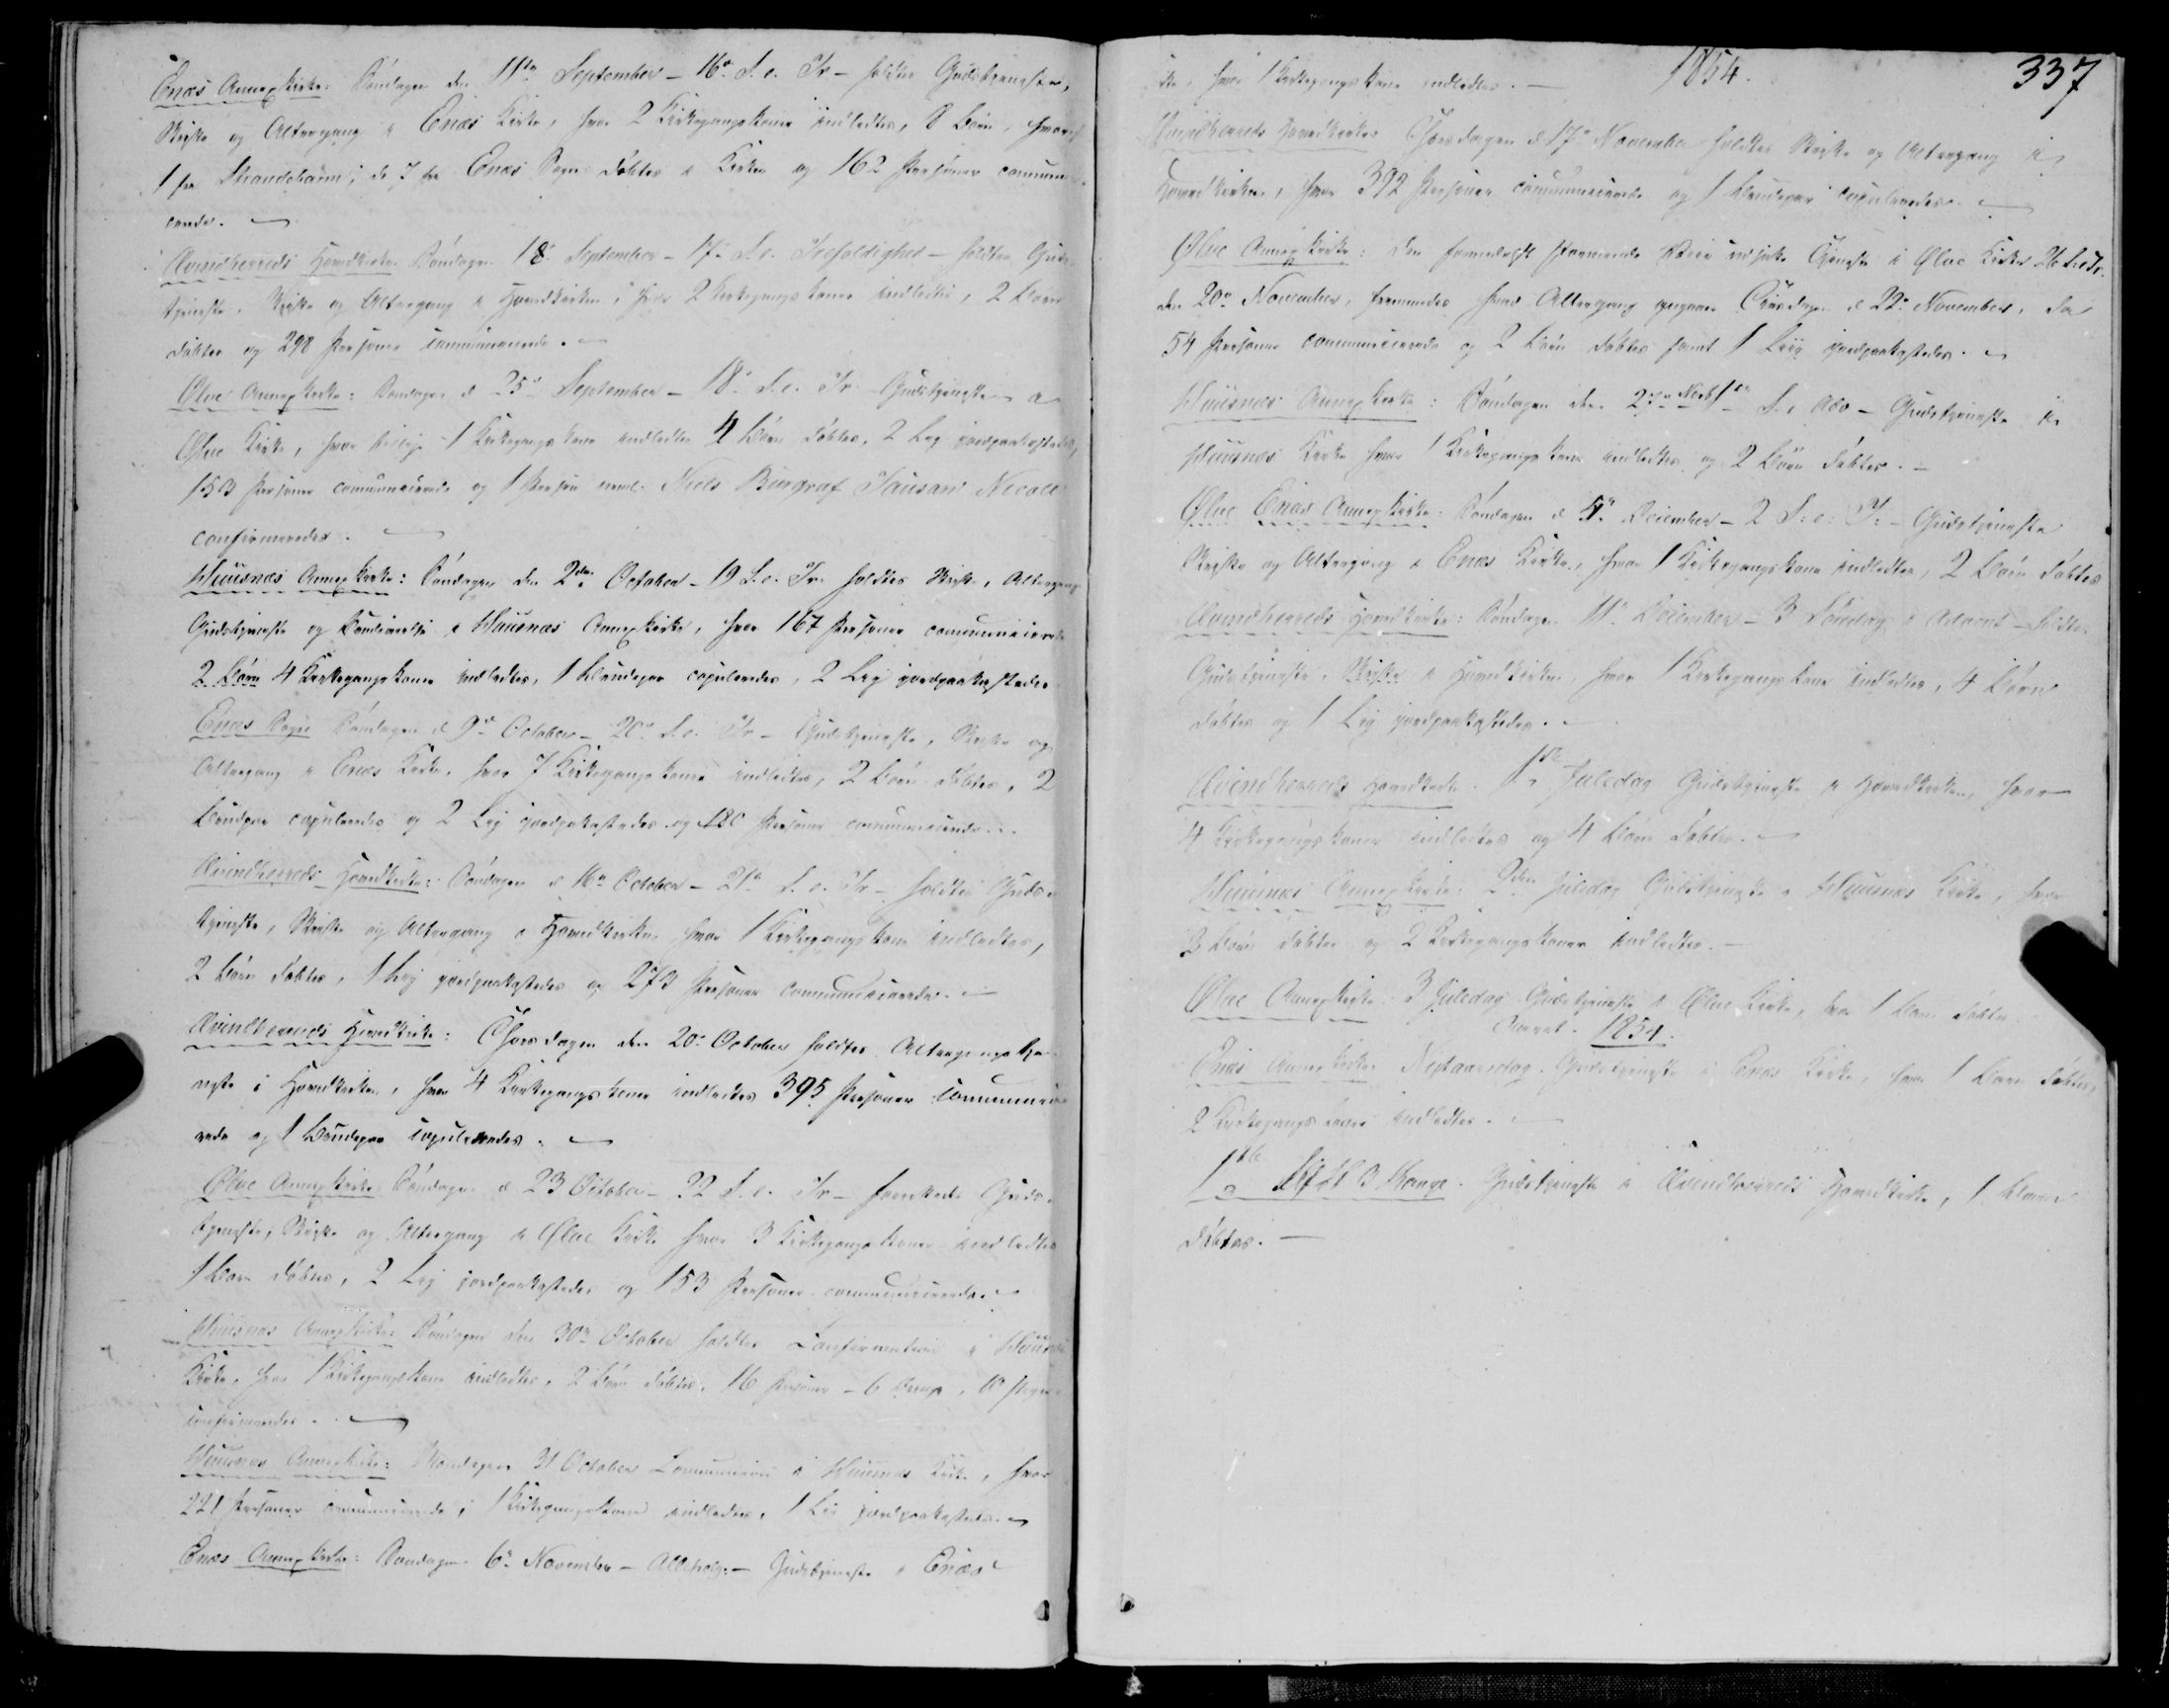 Enæs Annexkirke: Søndagen den 11te September – 16de S. e. Tr – holdtes Gudstjeneste,
Skrifte og Altergang i Enæs Kirke, hvor 2 Kirkegangskoner indledtes, 8 Børn, hvoraf
1 fra Strandebarm, de 7 fra Enæs Sogn døbtes i Kirken og 162 Personer communi-
cerede. –
Qvindherreds Hovedkirke Søndagen 18de September – 17de S. e. Trefoldighed – holdtes Guds-
tjeneste, Skrifte og Altergang i Hovedkirken, hvor 2 Kirkegangskoner indledtes, 2 Børn
døbtes og 298 Personer communicerede. –
Ølve Annexkirke: Søndagen d 25de September – 18de S. e. Tr – Gudstjeneste i
Ølve Kirke, hvor 1 Kirkegangskone indledtes 4 Børn døbtes, 2 Lig jordpaakastedes,
153 Personer communicerede og 1 Person neml. Niels
confirmeredes. –
Huusnæs Annexkirke: Søndagen den 2den October – 19 S. e. Tr. holdtes Skrifte, Altergang
Gudstjeneste og i Huusnæs Annexkirke, hvor 167 Personer communicerede
2 Børn 4 Kirkegangskoner indledtes, 1 Brudepar copuleredes, 2 Lig jordpaakastedes
Enæs Sogn Søndagen d 9de October – 20de S. e. Tr – Gudstjeneste, Skrifte og
Altergang i Enæs Kirke, hvor 7 Kirkegangskoner indledtes, 2 Børn døbtes, 2
Brudepar copuleredes og 2 Lig jordpakastedes og 180 Personer communicerede. –
Qvindherreds Hovedkirke: Søndagen d 16de October – 21de S. e. Tr – holdtes Guds-
tjeneste, Skrifte og Altergang i Hovedkirken hvor 1 Kirkegangskone indledtes,
2 Børn døbtes, 1 Lig jordpaakastedes og 273 Personer communicerede. –
Qvindherreds Hovedkirke: Thorsdagen den 20de October holdtes Altergangstje-
neste i Hovedkirken, hvor 4 Kirkegangskoner indledtes 395 Personer communice-
rede og 1 Brudepar copuleredes. –
Ølve Annexkirke Søndagen d 23 October – 22 S. e. Tr – Guds-
tjeneste, Skrifte og Altergang i Ølve Kirke hvor 3 Kirkegangskoner indledtes
1 Barn døbtes, 2 Lig jordpaakastedes og 153 Personer communicerede. –
Huusnæs Annexkirke Søndagen den 30te October holdtes Confirmation i Huusnæs
Kirke, hvor 1 Kirkegangskone indledtes, 2 Børn døbtes, 16 Personer – 6 Drenge, 10 Piger
confirmeredes. –
Huusnæs Annexkirke: Mandagen 31 October Communion i Huusnæs Kirke, hvor
221 Personer communicerede, 1 Kirkegangskone indledtes, 1 Lig jordpaakastedes. –
Enæs Annexkirke: Søndagen 6te November – Allehelg. – Gudstjeneste i Enæs
1854. 337
Kirke, hvor 1 Kirkegangskone indledtes. –
Qvindherreds Hovedkirke Thorsdagen d 17de November holdtes Skrifte og Altergang i
Hovedkirken, hvor 392 Personer communicerede og 1 Brudepar copuleredes. –
Ølve Annexkirke: Den Tjeneste i Ølve Kirke 26 S.e.Tr.
den 20de November, hvad Altergang Tirsdagen d 22de November, da
54 Personer communicerede og 2 Børn døbtes samt 1 Liig jordpaakastedes. –
Huusnæs Annexkirke: Søndagen den 27de Novbr 1ste S. i Adv – Gudstjeneste i
Huusnæs Kirke hvor 1 Kirkegangskone indledtes og 2 Børn døbtes. –
Ølve Enæs Annexkirke: Søndagen d 4de December – 2 S: – Gudstjeneste
Skrifte og Altergang i Enæs Kirke, hvor 1 Kirkegangskone indledtes, 2 Børn døbtes
Qvindherreds Hovedkirke: Søndagen 11te December – 3 Søndag i Advent – holdtes
Gudstjeneste, Skrifte i Hovedkirken, hvor 1 Kirkegangskone indledtes, 4 Børn
døbtes og 1 Lig jordpaakastedes. –
Qvindherreds Hovedkirke. 1ste Juledag Gudstjeneste i Hovedkirken, hvor
4 Kirkegangskoner indledtes og 4 Børn døbtes. –
Huusnæs Annexkirke: 2den Juledag Gudstjeneste i Huusnæs Kirke, hvor
3 Børn døbtes og 2 Kirkegangskoner indledtes. –
Ølve Annexkirke. 3 Juledag Gudstjeneste i Ølve Kirke, hvor 1 Barn døbtes.
Aaret 1854.
Enæs Annexkirke Nytaarsdag. Gudstjeneste i Enæs Kirke, hvor 1 Barn døbtes,
2 Kirkegangskoner indledtes. –
1ste S. e. H. 3 Konge. Gudstjeneste i Qvindherreds Hovedkirke, 1 Barn
døbtes. –